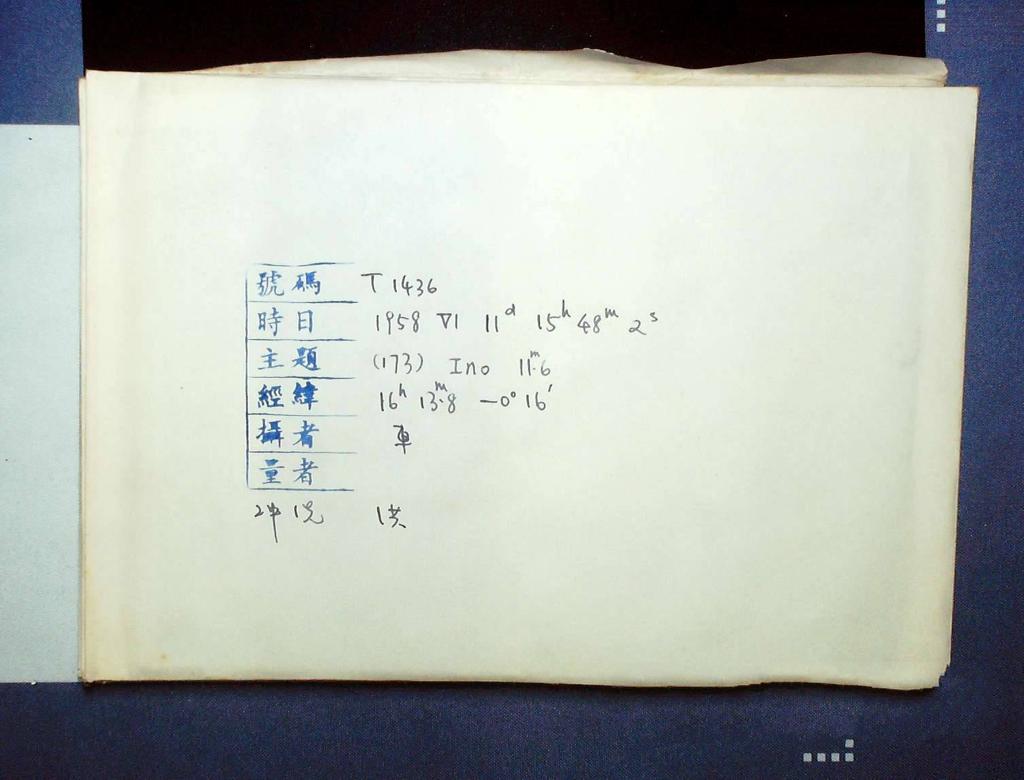 號碼 T 1436
時日 1958 VI 11ᵈ 15ʰ 48ᵐ 2ˢ
主題 (173) Ino 11ᵐ.6
經緯 16ʰ 13ᵐ.8 —0° 16′
攝者 車
量者
冲洗 洪